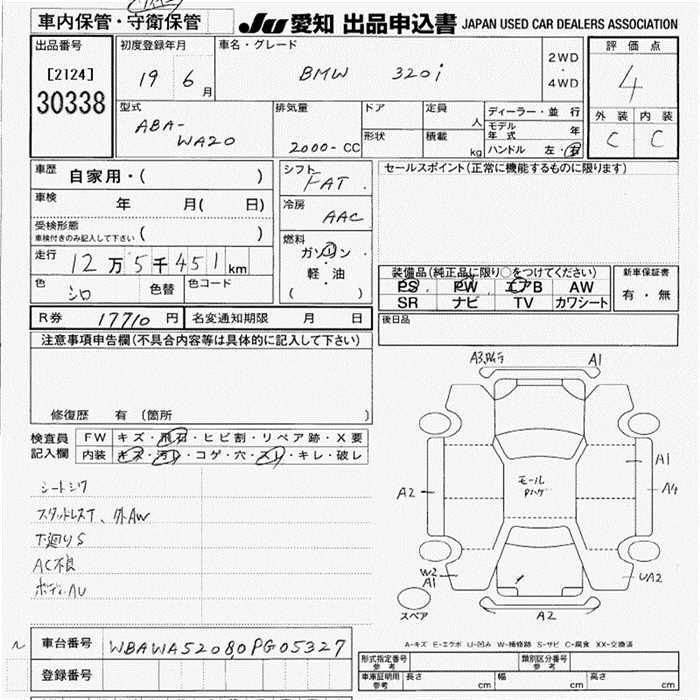 車内保管・守衛保管
JU 愛知 出品申込書 JAPAN USED CAR DEALERS ASSOCIATION
出品番号
[2124]
30338
初度登録年月
19 6月
車名・グレード
BMW 320i
2WD
・
4WD
評価点
4
外装 内装
C C
型式
ABA-
WA20
排気量
2000-CC
ドア
定員
人
形状
積載
kg
ディーラー・並 行
モデル年式 年
ハンドル 左・右
車歴
自家用・( )
車検
年 月( 日)
受検形態
車検付きのみ記入して下さい ( )
走行
12万5千451km
色
シロ
色替
色コード
シフト
FAT
冷房
AAC
燃料
ガソリン
軽・油
( )
セールスポイント(正常に機能するものに限ります)
装備品(純正品に限り○をつけてください)
PS PW エアB AW
SR ナビ TV カワシート
新車保証書
有・無
R券 17710円
名変通知期限 月 日
後日品
注意事項申告欄(不具合内容等は具体的に記入して下さい)
修復歴 有 (箇所 )
検査員
記入欄
FW キズ・飛石・ヒビ割・リペア跡・X要
内装 キズ・汚レ・コゲ・穴・スレ・キレ・破レ
シートシワ
スタッドレスT、外AW
下廻りS
AC不良
ボディAU
A1
A2
モール
Pハゲ
A1
A4
W2
A1
UA2
A2
スペア
A-キズ E-エクボ U-凹み W-補修跡 S-サビ C-腐食 XX-交換済
車台番号 WBAWA52080PG05327
登録番号
形式指定番号
参考
類別区分番号
参考
車庫証明用
参考
長さ cm
幅 cm
高さ cm